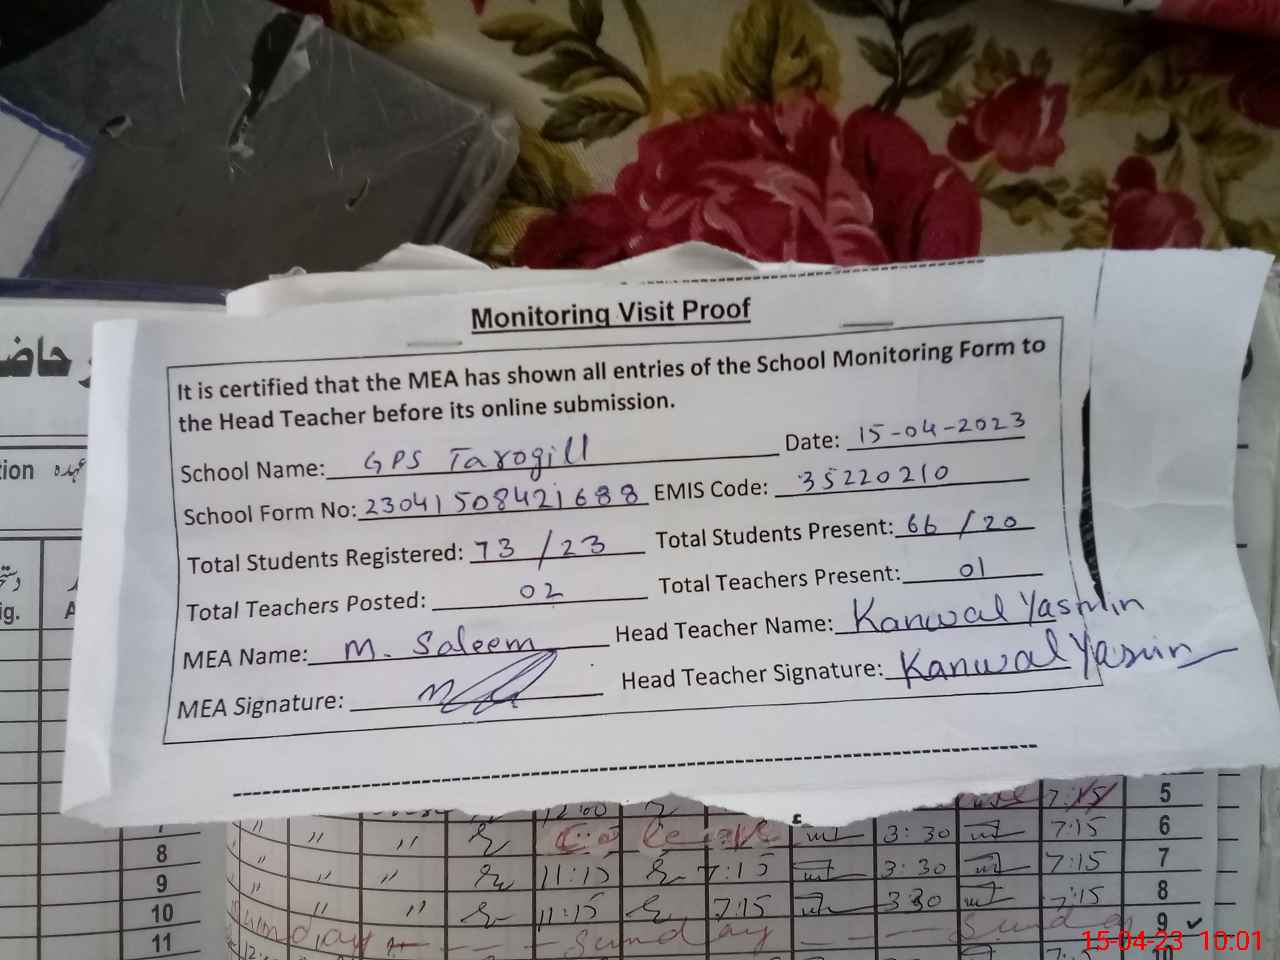 Monitoring Visit Proof
It is certified that the MEA has shown all entries of the School Monitoring Form to
the Head Teacher before its online submission.
School Name: GPS Tarogill Date: 15-04-2023
School Form No: 23041508421688 EMIS Code: 35220210
Total Students Registered: 73 /23 Total Students Present: 66 /20
Total Teachers Posted: 02 Total Teachers Present: 01
MEA Name: M. Saleem Head Teacher Name: Kanwal Yasmin
MEA Signature: Head Teacher Signature: Kanwal Yasmin
حاض
tion عہدہ
ig. A
12:00 7:15 5
7 " " " 3:30 7:15 6
8 " " " 11:15 7:15 3:30 7:15 7
9 " " " 11:15 7:15 330 7:15 8
10 Sunday Sunday Sunday 9
11 10
15-04-23 10:01